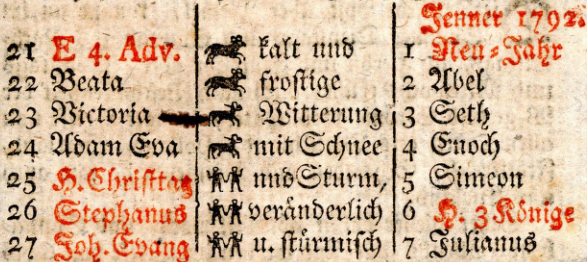 Jenner 1792.
21 E 4. Adv. kalt und 1 Neu-Jahr
22 Beata frostige 2 Abel
23 Victoria Witterung 3 Seth
24 Adam Eva mit Schnee 4 Enoch
25 H. Christtag und Sturm, 5 Simeon
26 Stephanus veränderlich 6 H. 3 Könige
27 Joh. Evang u. stürmisch 7 Julianus